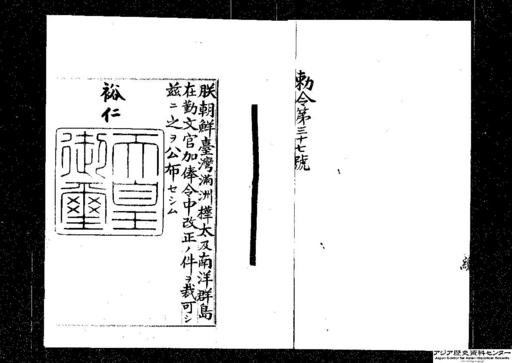 勅令第三十七號
朕朝鮮臺灣滿洲樺太及南洋群島
在勤文官加俸令中改正ノ件ヲ裁可シ
玆ニ之ヲ公布セシム
裕仁
天皇
御璽
アジア歴史資料センター
Japan Center for Asian Historical Records